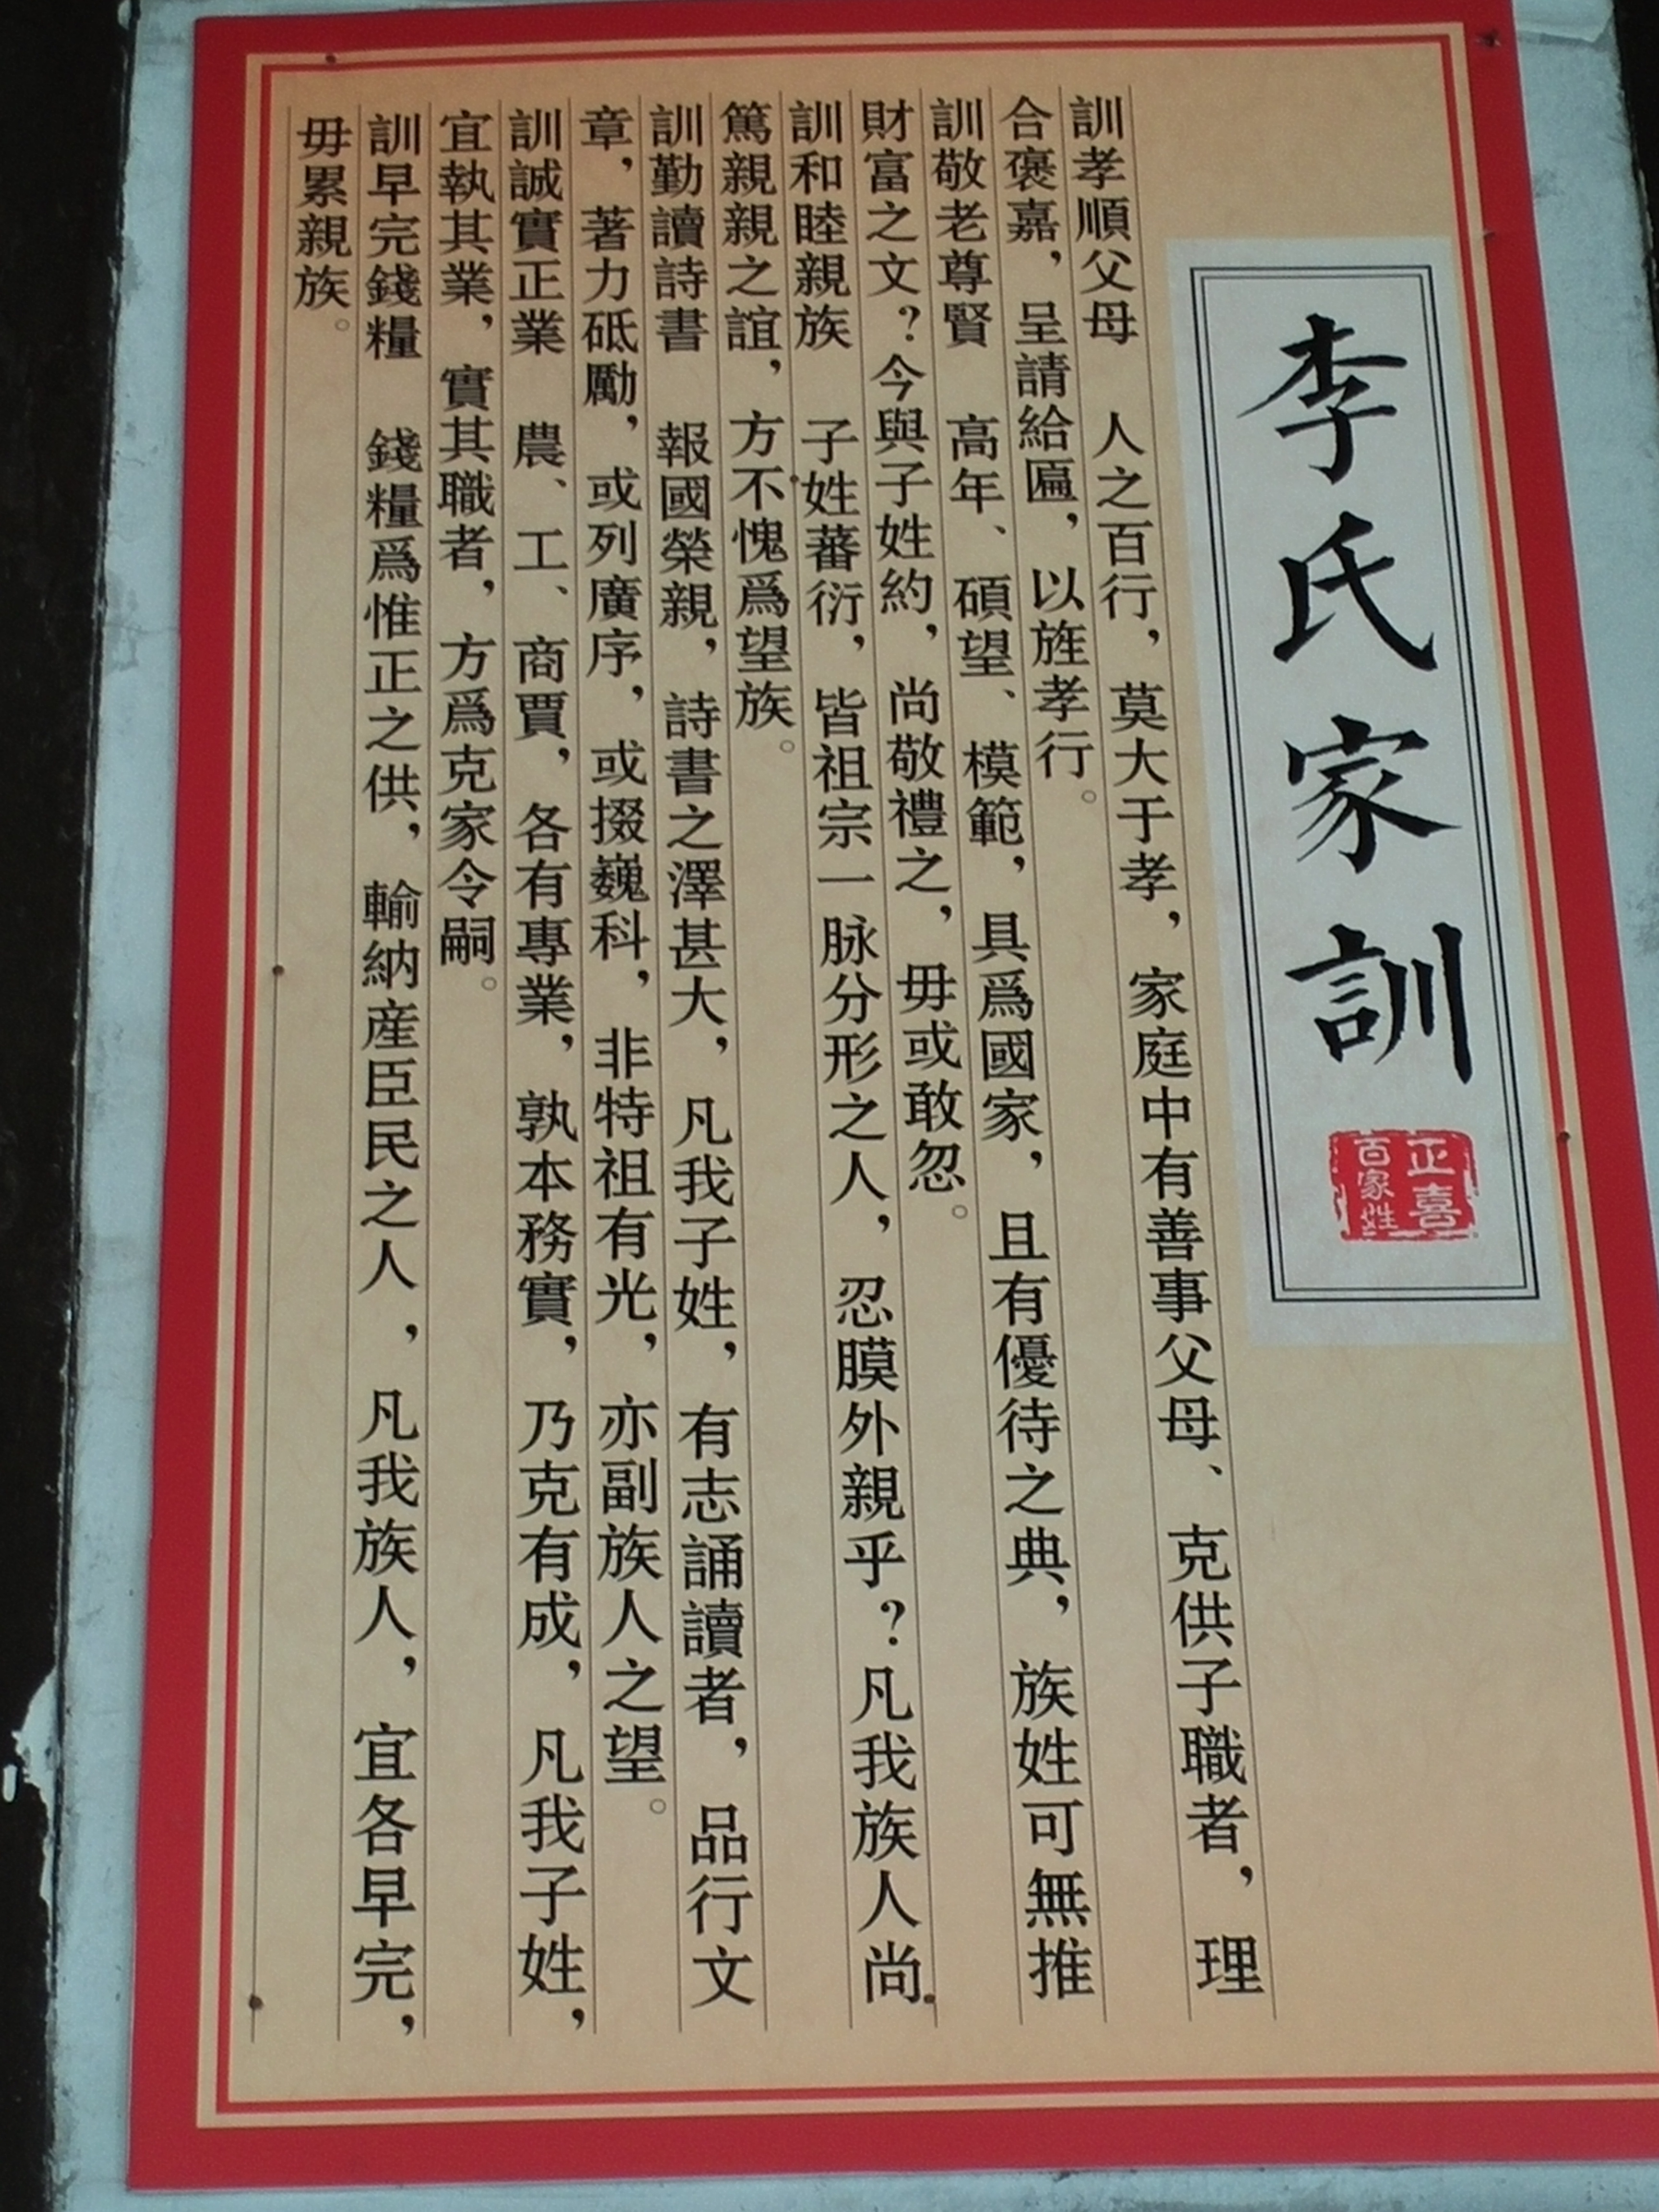 李氏家訓
正喜
百家姓
訓孝順父母 人之百行，莫大于孝，家庭中有善事父母、克供子職者，理
合褒嘉，呈請給匾，以旌孝行。
訓敬老尊賢 高年、碩望、模範，具爲國家，且有優待之典，族姓可無推
財富之文？今與子姓約，尚敬禮之，毋或敢忽。
訓和睦親族 子姓蕃衍，皆祖宗一脉分形之人，忍膜外親乎？凡我族人尚
篤親親之誼，方不愧爲望族。
訓勤讀詩書 報國榮親，詩書之澤甚大，凡我子姓，有志誦讀者，品行文
章，著力砥勵，或列廣序，或掇巍科，非特祖有光，亦副族人之望。
訓誠實正業 農、工、商賈，各有專業，孰本務實，乃克有成，凡我子姓，
宜執其業，實其職者，方爲克家令嗣。
訓早完錢糧 錢糧爲惟正之供，輸納産臣民之人，凡我族人，宜各早完，
毋累親族。